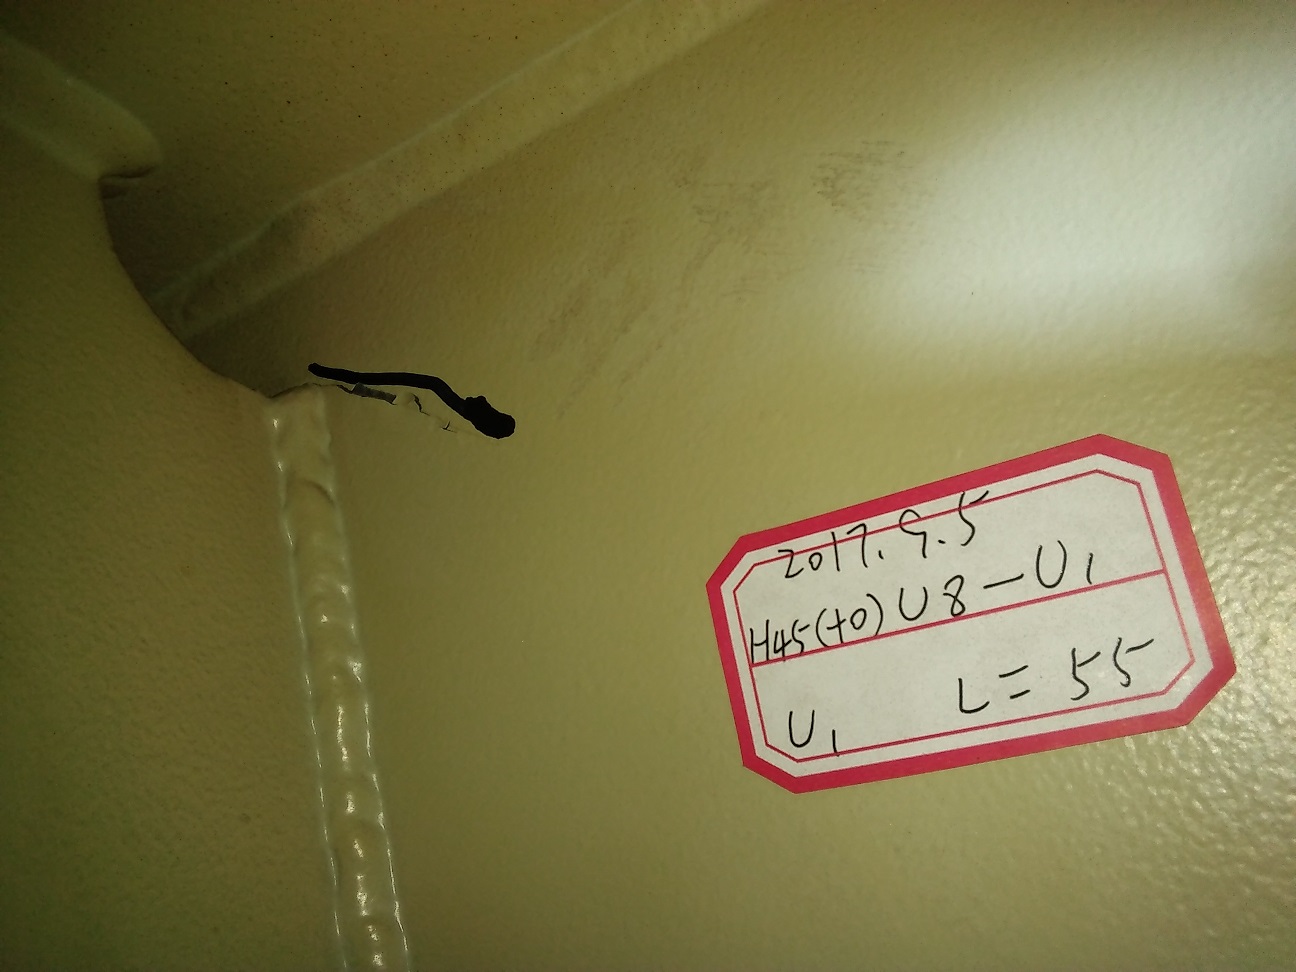 2017.9.5
H45(+0)U8-U1
U1 L=55